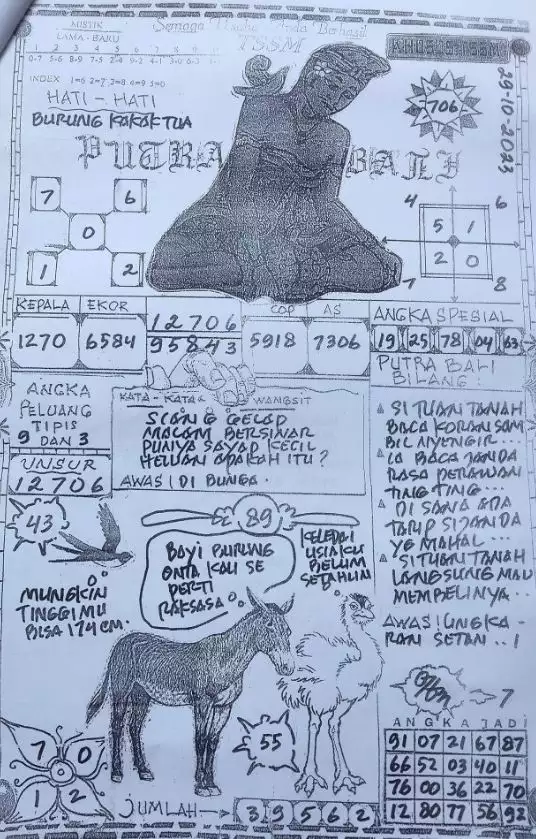 MISTIK
LAMA - BARU
Semoga Usaha Anda Berhasil
TSSM
INDEX 1=6 2=7 3=8 4=9 5=0
HATI - HATI
BURUNG KAKAKTUA
706
29-10-2023
PUTRA BALI
7 6
0
1 2
4 6
5 1
2 0
7 8
KEPALA EKOR
1270 6584
12706
95843
COP AS
5918 7306
ANGKA SPESIAL
19 25 78 04 63
PUTRA BALI
BILANG :
ANGKA
PELUANG
TIPIS
9 DAN 3
UNSUR
12706
KATA - KATA WANGSIT
SIANG GELAP
MALAM BERSINAR
PUNYA SAYAP KECIL
HEWAN APAKAH ITU ?
AWAS ! DI BUNGA .
SI TUAN TANAH
BACA KORAN SAM
BIL NYENGIR ...
IA BACA JANDA
RASA PERAWAN
TING TING ...
DI SANA ADA
TARIP SI JANDA
YG MAHAL ...
SI TUAN TANAH
LANGSUNG MAU
MEMBELINYA ..
AWAS ! UNGKA -
RAN SETAN .. !
43
89
MUNGKIN
TINGGIMU
BISA 174 CM .
BAYI BURUNG
ONTA KOK SE
PERTI
RAKSASA
KELEDAI
USIAKU
BELUM
SETAHUN
55
7 0
1 2
JUMLAH
3 9 5 6 2
7
ANGKA JADI
91 07 21 67 87
66 52 03 40 11
76 00 36 22 70
12 80 77 56 92